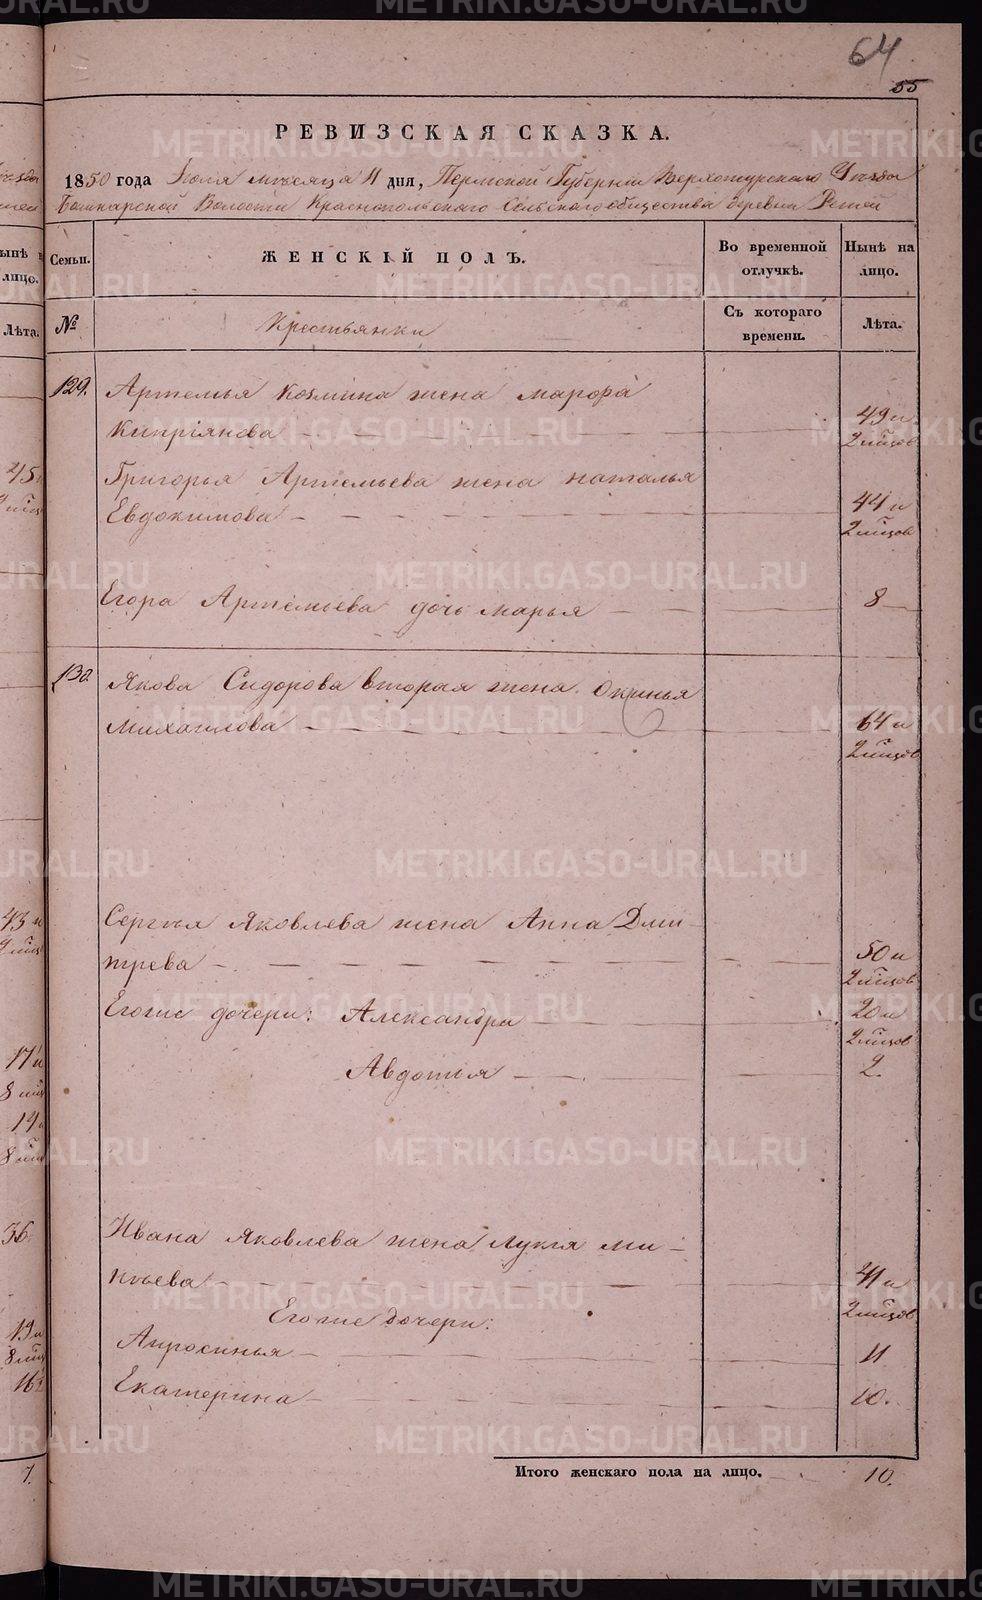 64
55
РЕВИЗСКАЯ СКАЗКА.
1850 года Июля месяца 11 дня, Пермской Губернiи Верхотурского Уезда
Башкарской Волости Краснопольскаго Сельскаго общества деревни
Семьи.
ЖЕНСКIЙ ПОЛЪ.
Во временной отлучкѣ.
Нынѣ на лицо.
№
Крестьянки
Съ котораго времени.
Лѣта.
129.
Артемья Козмина жена Марфа
Кипрiянова 49 и 2 мѣсцов
Григорья Артемьева жена Наталья
Евдокимова 44 и 2 мѣсцов
Егора Артемьева дочь Марья 8
130.
Якова Сидорова вторая жена Окринья
Михаилова 64 и 2 мѣсцов
Сергѣя Яковлева жена Анна Дми-
трева 50 и 2 мѣсцов
Егоже дочери: Александра 20 и 2 мѣсцов
Авдотья 2.
Ивана Яковлева жена Лукiя Ми-
нѣева 41 и 2 мѣсцов
Егоже дочери:
Апросинья 11
Екатерина 10.
Итого женскаго пола на лицо. 10.
METRIKI.GASO-URAL.RU